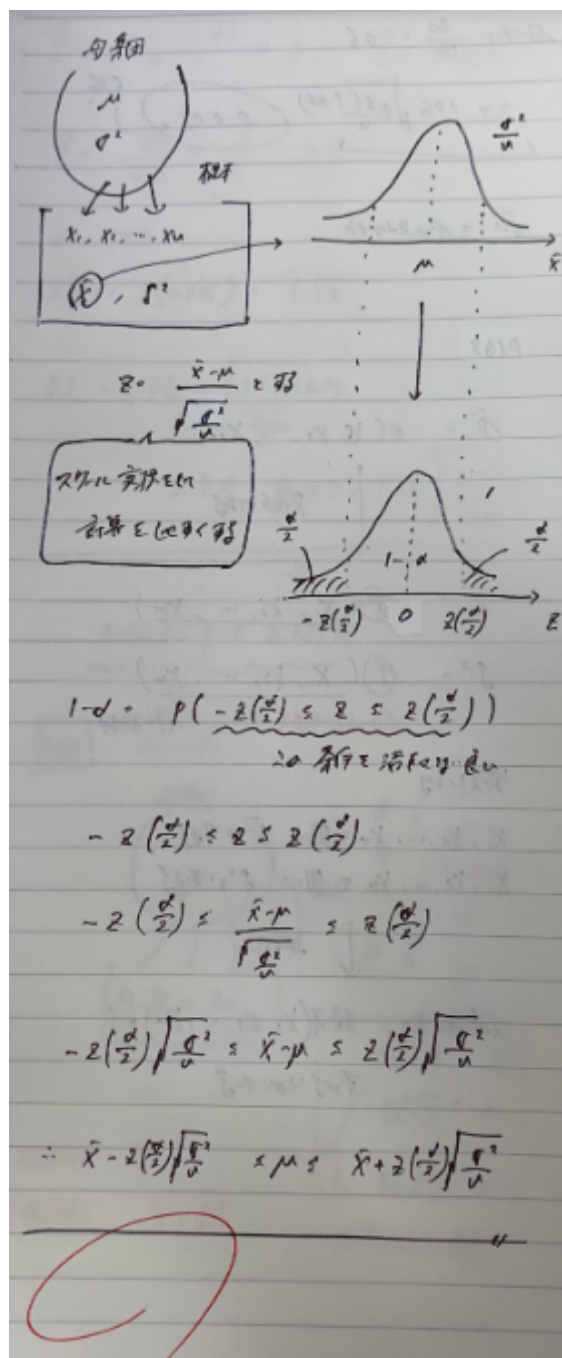 母集団
μ
σ²
標本
x₁, x₁, ..., xₙ
x̄, s²
σ²/n
μ
x̄
z = (x̄-μ)/√(σ²/n) とする
スケール変換をして
計算をしやすくする
α/2
1-α
α/2
-z(α/2) 0 z(α/2) z
1-α = P(-z(α/2) ≤ z ≤ z(α/2))
この条件を
-z(α/2) ≤ z ≤ z(α/2)
-z(α/2) ≤ (x̄-μ)/√(σ²/n) ≤ z(α/2)
-z(α/2)√(σ²/n) ≤ x̄-μ ≤ z(α/2)√(σ²/n)
∴ x̄-z(α/2)√(σ²/n) ≤ μ ≤ x̄+z(α/2)√(σ²/n)